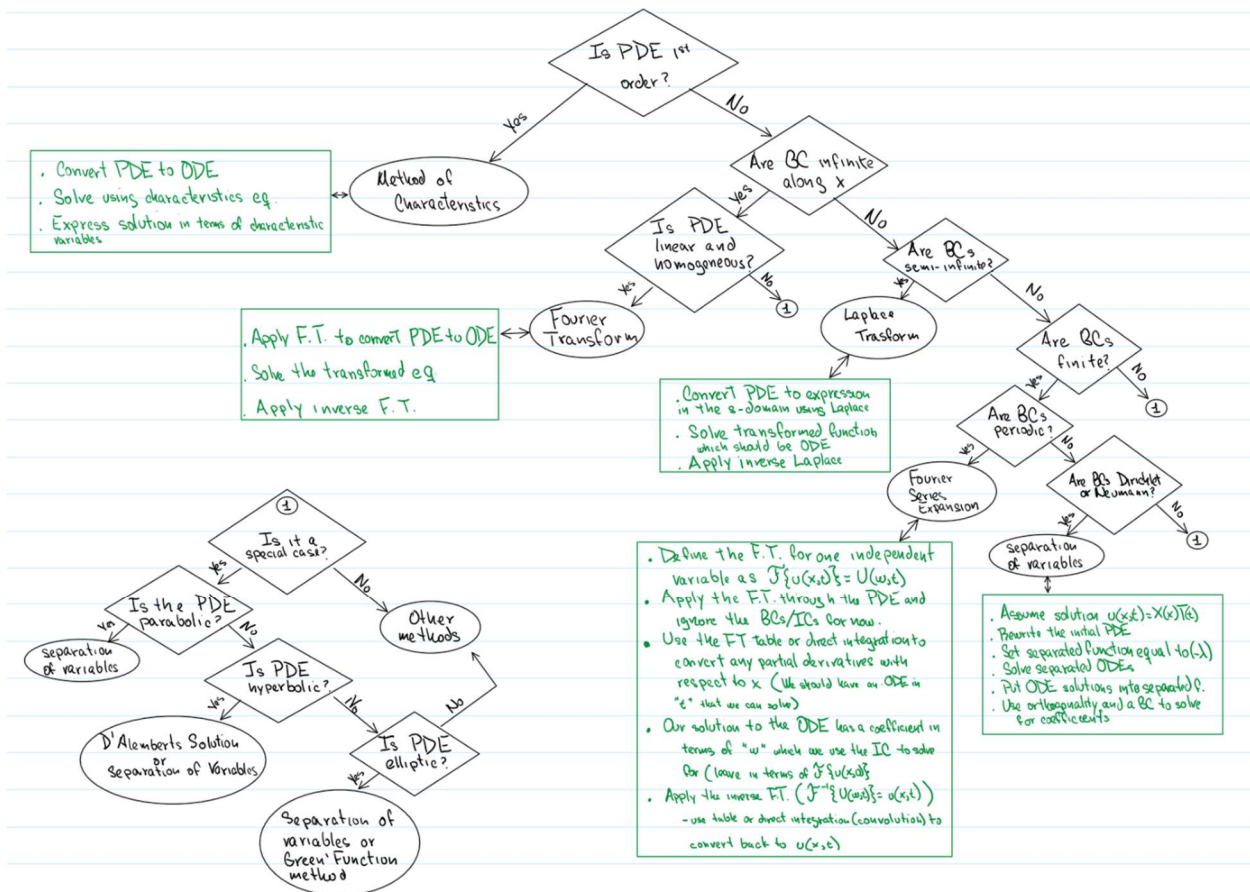 Is PDE 1st
order?
Yes
No
. Convert PDE to ODE
. Solve using characteristics eq.
. Express solution in terms of characteristic
variables
Method of
Characteristics
Are BC infinite
along x
Yes
No
Is PDE
linear and
homogeneous?
Yes
No
1
Fourier
Transform
. Apply F.T. to convert PDE to ODE
. Solve the transformed eq.
. Apply inverse F.T.
Are BCs
semi-infinite?
Yes
No
Laplace
Trasform
. Convert PDE to expression
in the s-domain using Laplace
. Solve transformed function
which should be ODE
. Apply inverse Laplace
Are BCs
finite?
Yes
No
1
Are BCs
periodic?
Yes
No
Fourier
Series
Expansion
Are BCs Dirichlet
or Neumann?
Yes
No
1
separation
of variables
• Define the F.T. for one independent
variable as F{u(x,t)} = U(w,t)
• Apply the F.T. through the PDE and
ignore the BCs/ICs for now.
• Use the FT table or direct integration to
convert any partial derivatives with
respect to x (We should have an ODE in
"t" that we can solve)
• Our solution to the ODE has a coefficient in
terms of "w" which we use the IC to solve
for (leave in terms of F{u(x,0)}
• Apply the inverse F.T. (F⁻¹{U(w,t)} = u(x,t))
- use table or direct integration (convolution) to
convert back to u(x,t)
. Assume solution u(x,t)=X(x)T(t)
. Rewrite the initial PDE
. Set separated function equal to (-λ)
. Solve separated ODEs
. Put ODE solutions into separated f.
. Use orthogonality and a BC to solve
for coefficients
1
Is it a
special case?
Yes
No
Is the PDE
parabolic?
Yes
No
Other
methods
separation
of variables
Is PDE
hyperbolic?
Yes
No
No
D'Alemberts Solution
or
Separation of Variables
Is PDE
elliptic?
Yes
Separation of
variables or
Green' Function
method